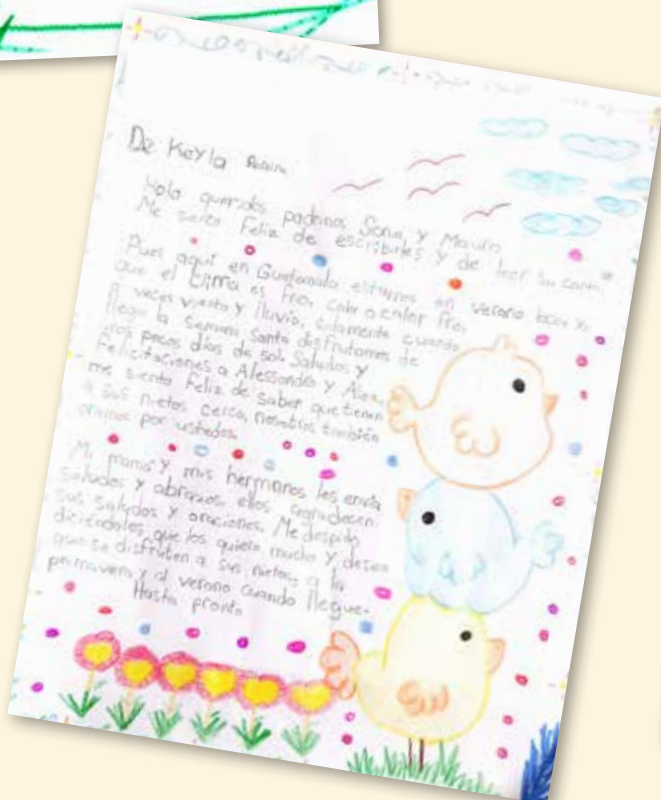 De Keyla
Hola queridos padrinos Sonia y Mauro
Me siento Feliz de escribirles y de leer su carta.
Pues aquí en Guatemala estamos en verano
que el clima es frio, calor o calor frio,
a veces viento y lluvia, solamente cuando
llega la semana Santa disfrutamos de
los pocos días de sol. Saludos y
Felicitaciones a Alessandro y
me siento feliz de saber que tienen
a sus nietos cerca, nosotros también
oramos por ustedes.
Mi mamá y mis hermanos les envía
saludos y abrazos. ellos agradecen
sus saludos y oraciones. Me despido
diciendoles que los quiero mucho y deseo
que se disfruten a sus nietos a la
primavera y al verano cuando llegue.
Hasta pronto